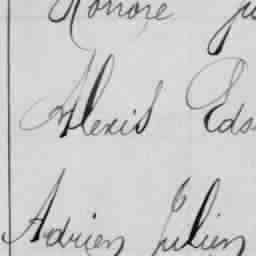 Honoré Ju
Alexis Eds
Adrien Julien